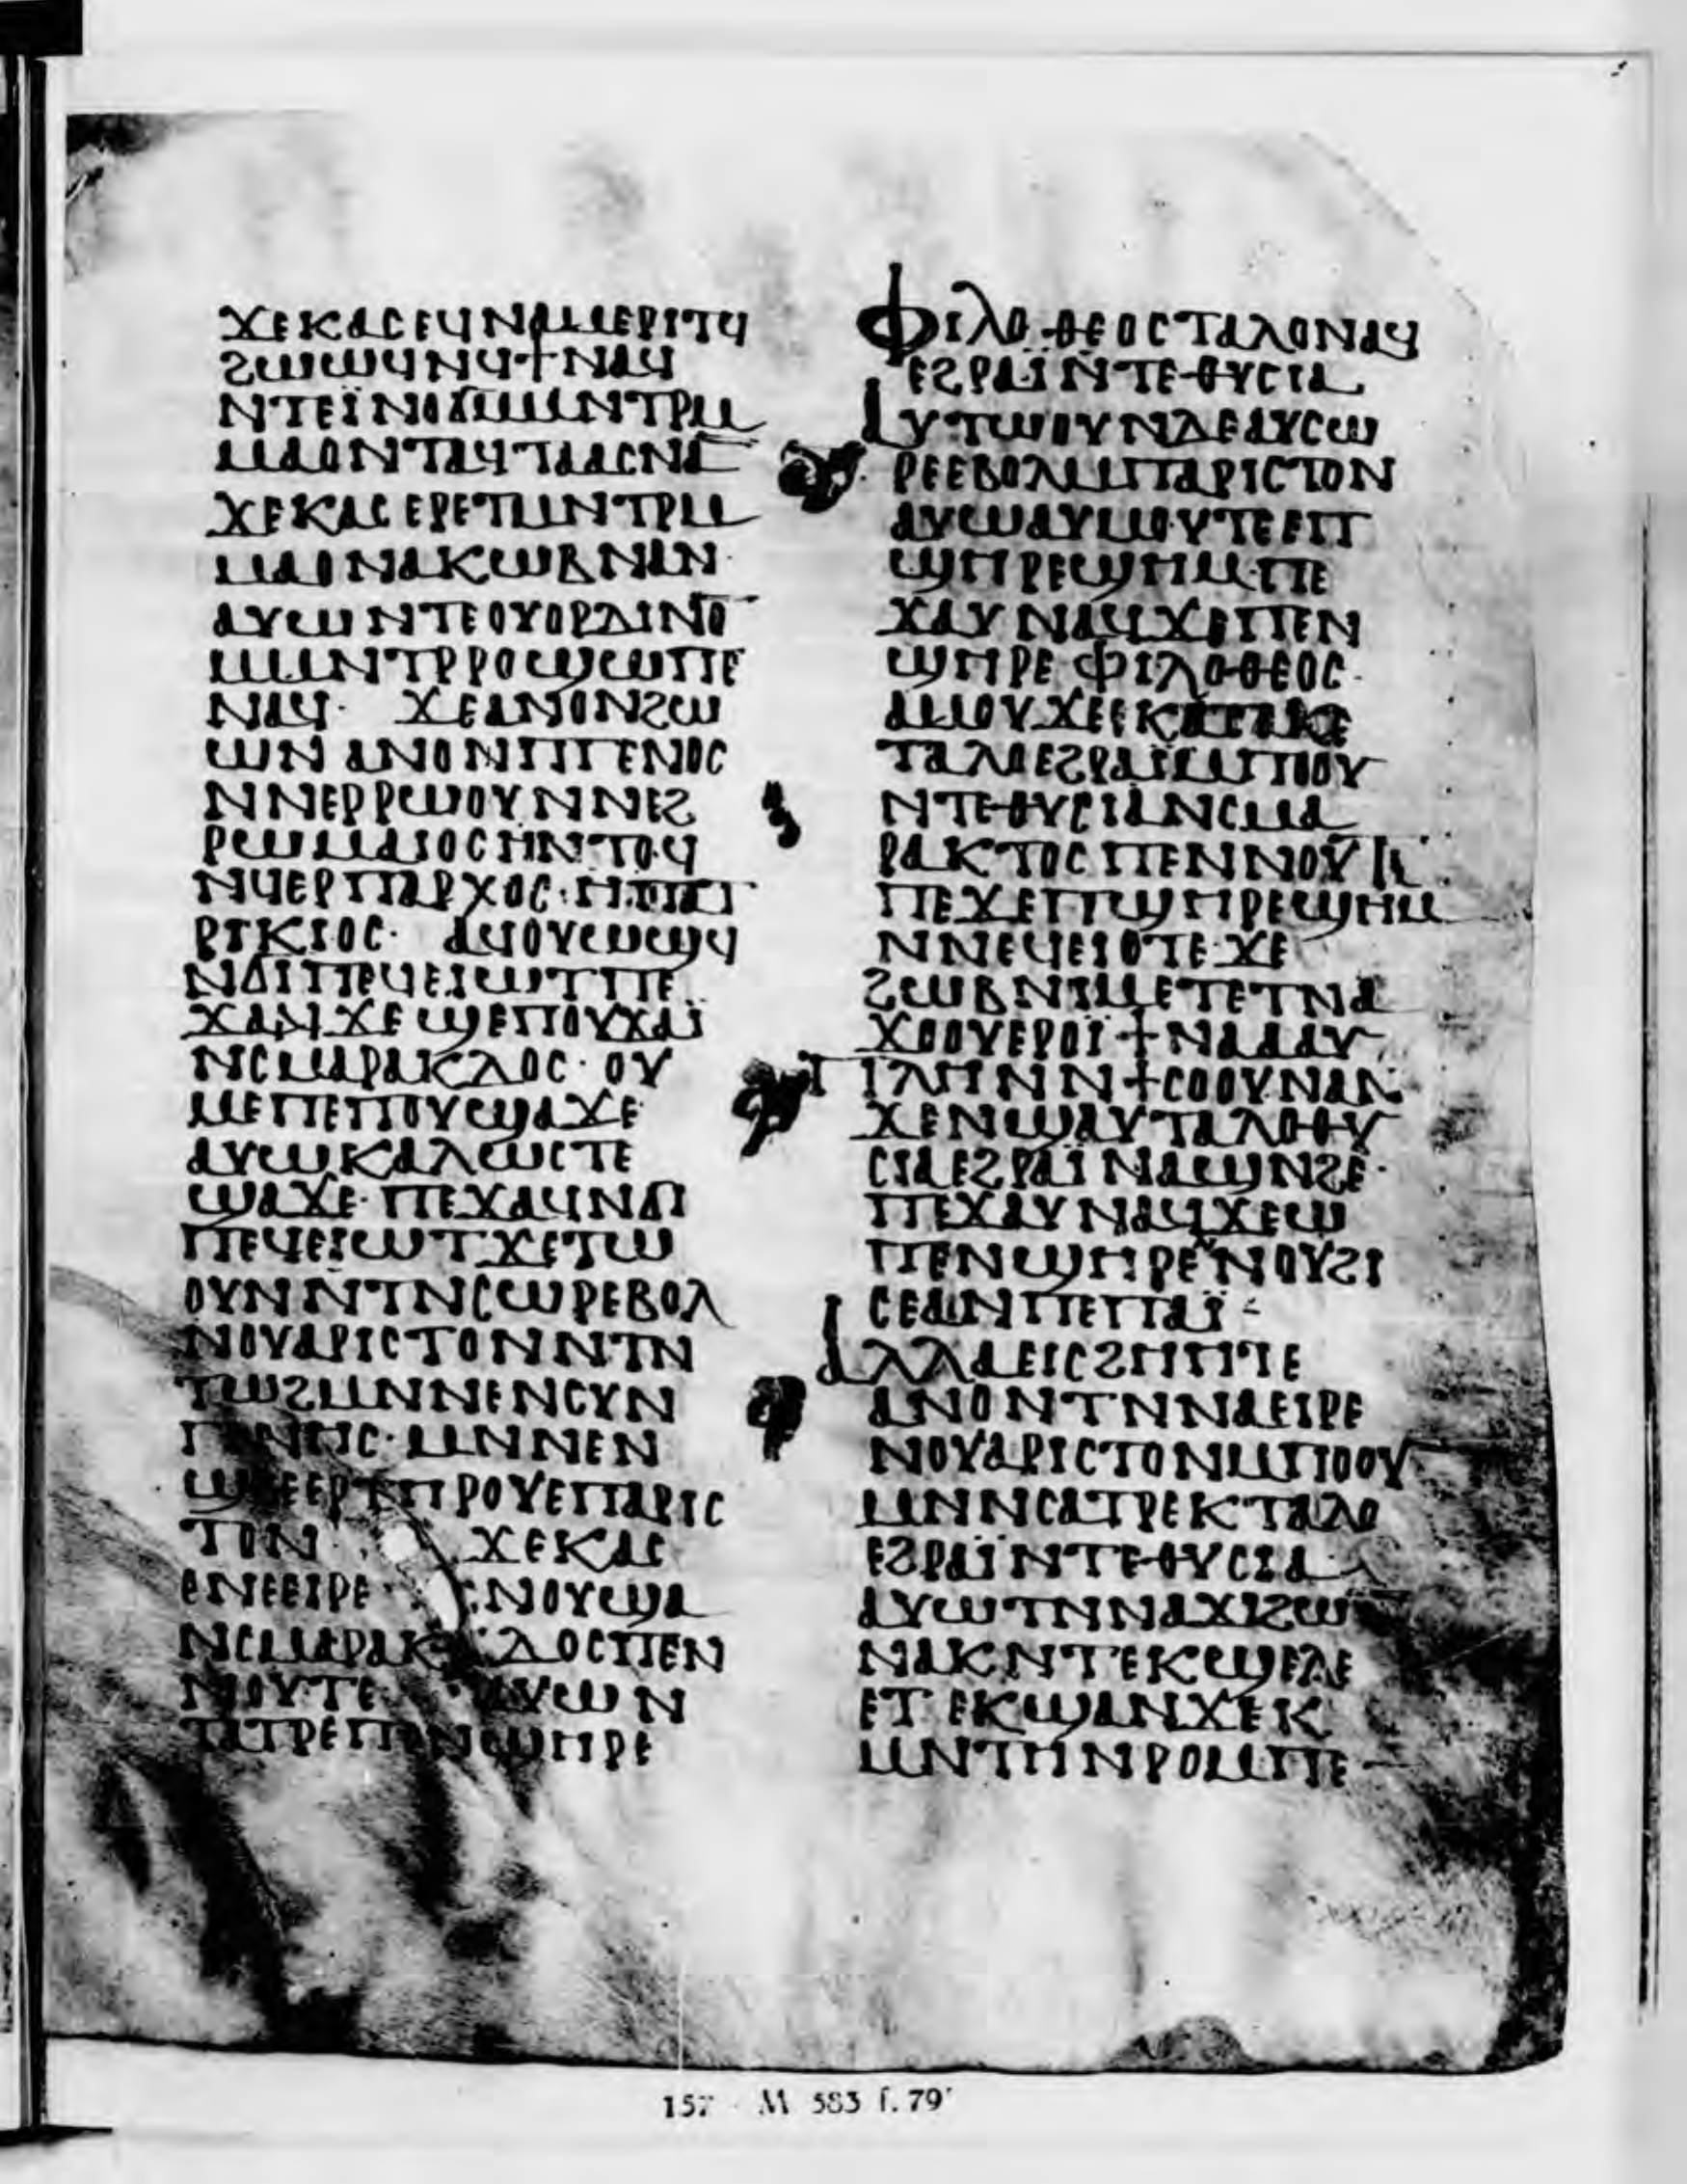 ϫⲉⲕⲁⲥⲉϥⲛⲁⲙⲉⲣⲓⲧϥ
ϩⲱⲱϥⲛϥϯⲛⲁϥ
ⲛⲧⲉⲓ̈ⲛⲟϭⲙⲙⲛⲧⲣⲙ
ⲙⲁⲟⲛⲧⲁϥⲧⲁⲁⲥⲛⲁ
ϫⲉⲕⲁⲥⲉⲣⲉⲧⲙⲛⲧⲣⲙ
ⲙⲁⲟⲛⲁⲕⲱⲃⲛⲁⲛ·
ⲁⲩⲱⲛⲧⲉⲟⲩⲟⲣⲇⲓⲛⲟ̅
ⲙⲙⲛⲧⲣⲣⲟϣⲱⲡⲉ
ⲛⲁϥ· ϫⲉⲁⲛⲟⲛϩⲱ
ⲱⲛ ⲁⲛⲟⲛⲡⲅⲉⲛⲟⲥ
ⲛⲛⲉⲣⲣⲱⲟⲩⲛⲛⲉϩ
ⲣⲱⲙⲁⲓⲟⲥⲏⲛⲧⲟϥ
ⲛϥⲉⲣⲡⲁⲣⲭⲟⲥ·ⲏⲡⲡⲁⲧ
ⲣⲓⲕⲓⲟⲥ· ⲁϥⲟⲩⲱϣϥ
ⲛϭⲓⲡⲉϥⲉⲓⲱⲧⲡⲉ
ϫⲁϥϫⲉϣⲉⲡⲟⲩϫⲁⲓ̈
ⲛⲥⲙⲁⲣⲁⲕⲇⲟⲥ· ⲟⲩ
ⲙⲉⲡⲉⲡⲟⲩϣⲁϫⲉ
ⲁⲩⲱⲕⲁⲗⲱⲥⲧⲉ
ϣⲁϫⲉ· ⲡⲉϫⲁϥⲛϭⲓ
ⲡⲉϥⲉⲓⲱⲧϫⲉⲧⲱ
ⲟⲩⲛⲛⲧⲛⲥⲱⲣⲉⲃⲟⲗ
ⲛⲟⲩⲁⲣⲓⲥⲧⲟⲛⲛⲧⲛ
ⲧⲱϩⲙⲛⲛⲉⲛⲥⲩⲛ
ⲅⲉⲛⲏⲥ· ⲙⲛⲛⲉⲛ
ϣⲃⲉⲉⲣⲧⲏⲣⲟⲩⲉⲡⲁⲣⲓⲥ
ⲧⲟⲛ ϫⲉⲕⲁⲥ
ⲉⲛⲉⲉⲓⲣⲉ ⲛⲟⲩϣⲁ
ⲛⲥⲙⲁⲣⲁⲕⲇⲟⲥⲡⲉⲛ
ⲛⲟⲩⲧⲉ ⲁⲩⲱ ⲛ
ⲧⲁⲧⲣⲉⲡⲉⲛϣⲏⲣⲉ
ⲫⲓⲗⲟⲑⲉⲟⲥⲧⲁⲗⲟⲛⲁϥ
ⲉϩⲣⲁⲓ̈ⲛⲧⲉⲑⲩⲥⲓⲁ
ⲁⲩⲧⲱⲟⲩⲛⲇⲉⲁⲩⲥⲱ
ⲣⲉⲉⲃⲟⲗⲙⲡⲁⲣⲓⲥⲧⲟⲛ
ⲁⲩⲱⲁⲩⲙⲟⲩⲧⲉⲉⲡ
ϣⲏⲣⲉϣⲏⲙ·ⲡⲉ
ϫⲁⲩⲛⲁϥϫⲉⲡⲉⲛ
ϣⲏⲣⲉ ⲫⲓⲗⲟⲑⲉⲟⲥ·
ⲁⲙⲟⲩϫⲉⲉⲕ
ⲧⲁⲗⲟⲉϩⲣⲁⲓ̈ⲙⲡⲟⲟⲩ
ⲛⲧⲉⲑⲩⲥⲓⲁⲛⲥⲙⲁ
ⲣⲁⲕⲧⲟⲥⲡⲉⲛⲛⲟⲩⲧⲉ
ⲡⲉϫⲉⲡϣⲏⲣⲉϣⲏⲙ
ⲛⲛⲉϥⲉⲓⲟⲧⲉ·ϫⲉ
ϩⲱⲃⲛⲓⲙⲉⲧⲉⲧⲛⲁ
ϫⲟⲟⲩⲉⲣⲟⲓ̈ϯⲛⲁⲁⲁⲩ
ⲡⲗⲏⲛⲛϯⲥⲟⲟⲩⲛⲁⲛ
ϫⲉⲛϣⲁⲩⲧⲁⲗⲟⲑⲩ
ⲥⲓⲁⲉϩⲣⲁⲓ̈ⲛⲁϣⲛϩⲉ·
ⲡⲉϫⲁⲩⲛⲁϥϫⲉⲱ
ⲡⲉⲛϣⲏⲣⲉⲛⲟⲩϩⲓ
ⲥⲉⲁⲛⲡⲉⲡⲁⲓ̈
ⲁⲗⲗⲁⲉⲓⲥϩⲏⲏⲧⲉ
ⲁⲛⲟⲛⲧⲛⲛⲁⲉⲓⲣⲉ
ⲛⲟⲩⲁⲣⲓⲥⲧⲟⲛⲙⲡⲟⲟⲩ
ⲙⲛⲛⲥⲁⲧⲣⲉⲕⲧⲁⲗⲟ
ⲉϩⲣⲁⲓ̈ⲛⲧⲉⲑⲩⲥⲓⲁ
ⲁⲩⲱⲧⲛⲛⲁϫⲓϩⲱ
ⲛⲁⲕⲛⲧⲉⲕϣⲉⲗⲉ
ⲉⲧ ⲉⲕϣⲁⲛϫⲉⲕ
ⲙⲛⲧⲏⲛⲣⲟⲙⲡⲉ
157 · M 583 f. 79ʳ